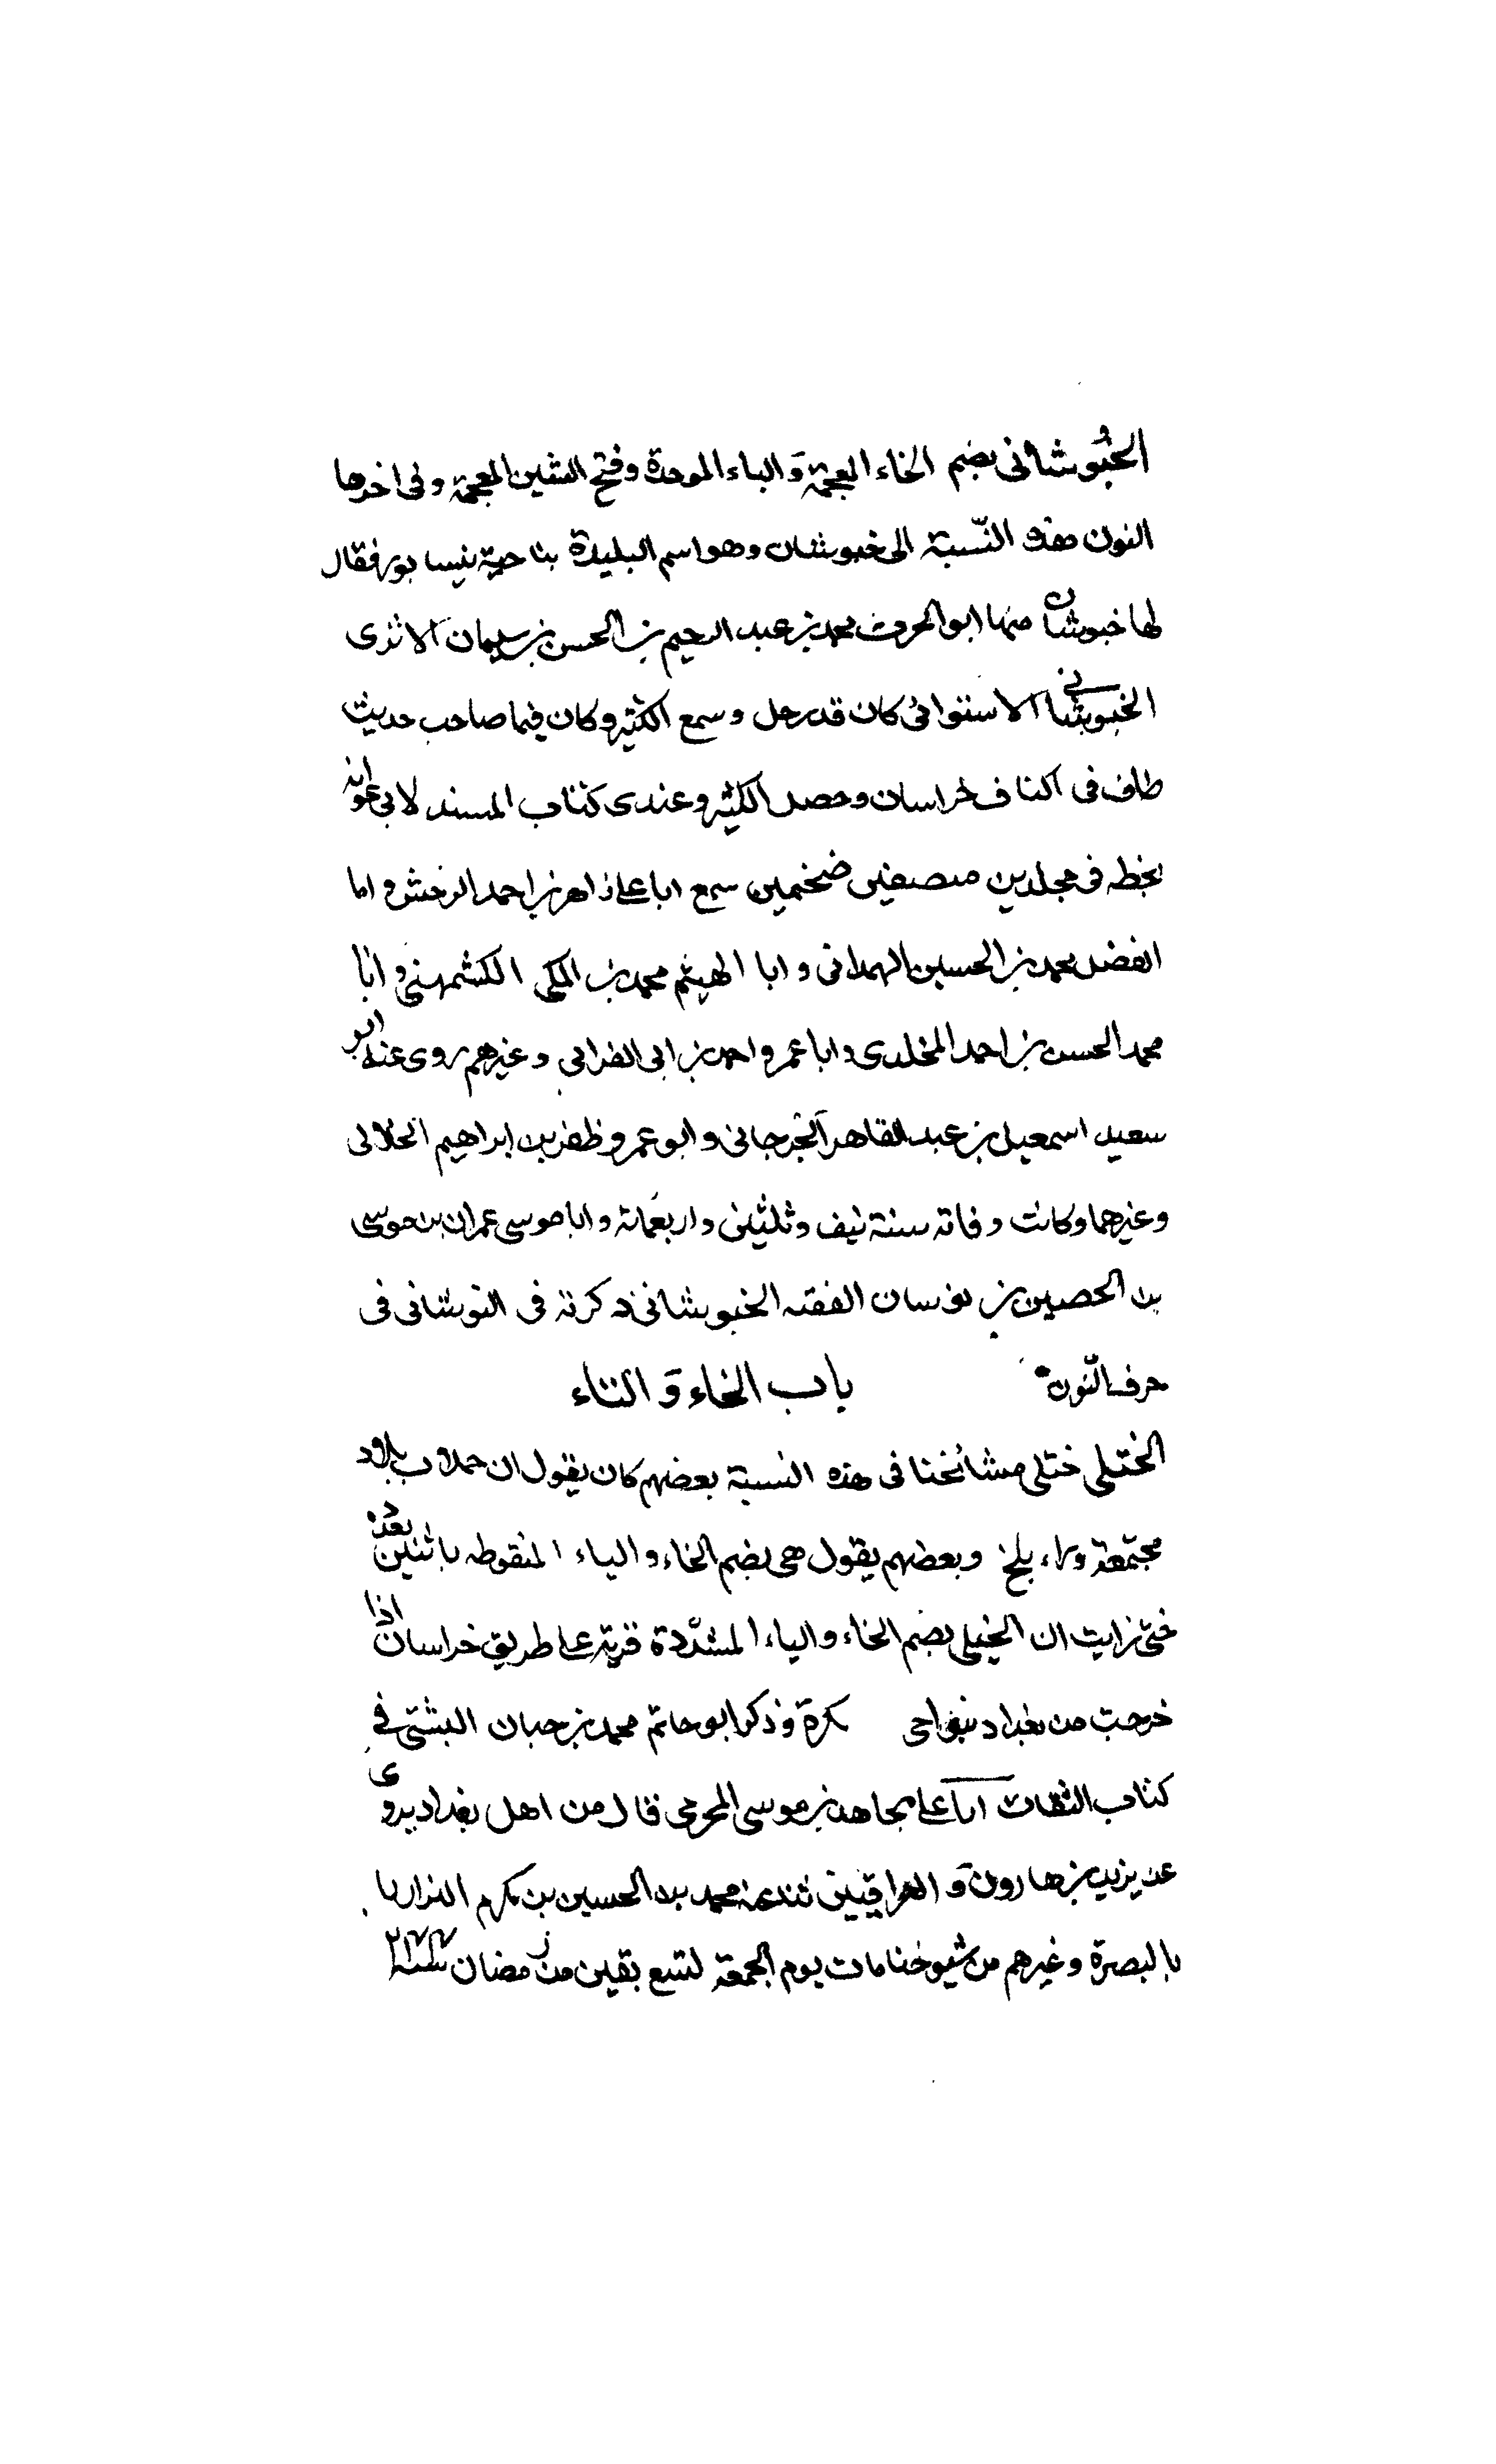 الخُبُوشانى بضم الخاء المعجمة وَ الباء الموحدة وفتح الشين المعجمة وفى اخرها
النون هذه النّسبة الى خبوشان وهو اسم البليدة بناحية نيسابور فقال
لها خبوشان منها ابو الحرث محمد بن عبد الرحيم بن الحسن بن سليمان الاثرى
الخبوشانى الاستوائى كان قد رحل وسمع الكثير وكان فيما صاحب حديث
طاف فى اكناف خراسان وحصل الكثير وعندى كتاب المسند لابى عوانه
بخطه فى مجلدين منصفين ضخمين سمع ابا على زاهر بن احمد السرخسى و ابا
الفضل محمد بن الحسين الهمدانى و ابا الهيثم محمد بن المكى الكشمهينى و ابا
محمد الحسن بن احمد المخلدى و ابا عمرو احمد بن ابى الفراتى وغيرهم روى عنه ابو
سعيد اسمعيل بن عبد القاهر الجرجانى و ابو عمرو ظفر بن ابراهيم الخلالى
وغيرهما وكانت وفاته سنة نيف وثلثين واربعمائه و ابا موسى عمران بن موسى
بن الحصين بن نوسان الفقيه الخبوشانى ذكرته فى النوشانى فى
حرف النّون
باب الخاء وَ التاء
الختلى ختلى مشائخنا فى هذه النسبة بعضهم كان يقول ان ختلان بلاد
مجتمعة وراء بلخ وبعضهم يقول هى بضم الخاء و الياء المنقوطه باثنين بعده
حتى رايت ان الخيلى بضم الخاء و الياء المشدّدة قرية على طريق خراسان اذا
خرجت من بغداد بنواحى كرة وذكر ابو حاتم محمد بن حبان البستى فى
كتاب الثقات ابا على مجاهد بن موسى المخرمى قال من اهل بغداد يروى
عن يزيد بن هارون وَ العراقيين ثنا عنه محمد بن الحسين بن مكرم البزار با
بالبصرة وغيرهم من شيوخنا مات يوم الجمعة لتسع بقين من رمضان سنة